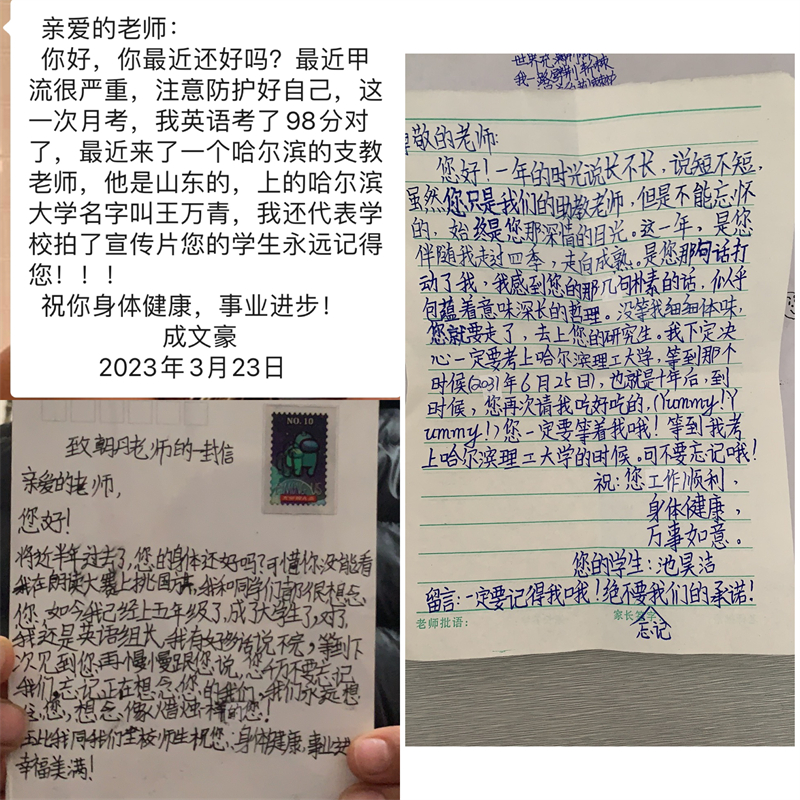 亲爱的老师：
你好，你最近还好吗？最近甲
流很严重，注意防护好自己，这
一次月考，我英语考了98分对
了，最近来了一个哈尔滨的支教
老师，他是山东的，上的哈尔滨
大学名字叫王万青，我还代表学
校拍了宣传片您的学生永远记得
您！！！
祝你身体健康，事业进步！
成文豪
2023年3月23日
NO.10
致朝月老师的一封信
亲爱的老师，
您好！
将近半年过去了，您的身体还好吗？可惜你没能看
我在朗读大赛上挑国旗，我和同学们都很想念
您，如今我已经上五年级了，成了大学生了，对了，
我还是英语组长，我有好多话说不完，等到下
次见到您再慢慢跟您说，您千万不要忘记
我们，忘记正在想念您的我们，我们永远想
您，想念像蜡烛一样的您！
此我同我们全校师生祝您：身体健康，事业
幸福美满！
世界充
我一路
敬的老师：
您好！一年的时光说长不长，说短不短，
虽然您只是我们的助教老师，但是不能忘怀
的，始终是您那深情的目光。这一年，是您
伴随我走过四季，走向成熟。是您那句话打
动了我，我感到您的那几句朴素的话，似乎
包蕴着意味深长的哲理。没等我细细体味，
您就要走了，去上您的研究生。我下定决
心一定要考上哈尔滨理工大学，等到那个
时候(2031年6月25日)，也就是十年后，到
时候，您再次请我吃好吃的，(Yummy！Y
ummy！)您一定要等着我哦！等到我考
上哈尔滨理工大学的时候。可不要忘记哦！
祝：您工作顺利，
身体健康，
万事如意。
您的学生：池昊洁
留言：一定要记得我哦！绝不要我们的承诺！
忘记
老师批语：
家长签字